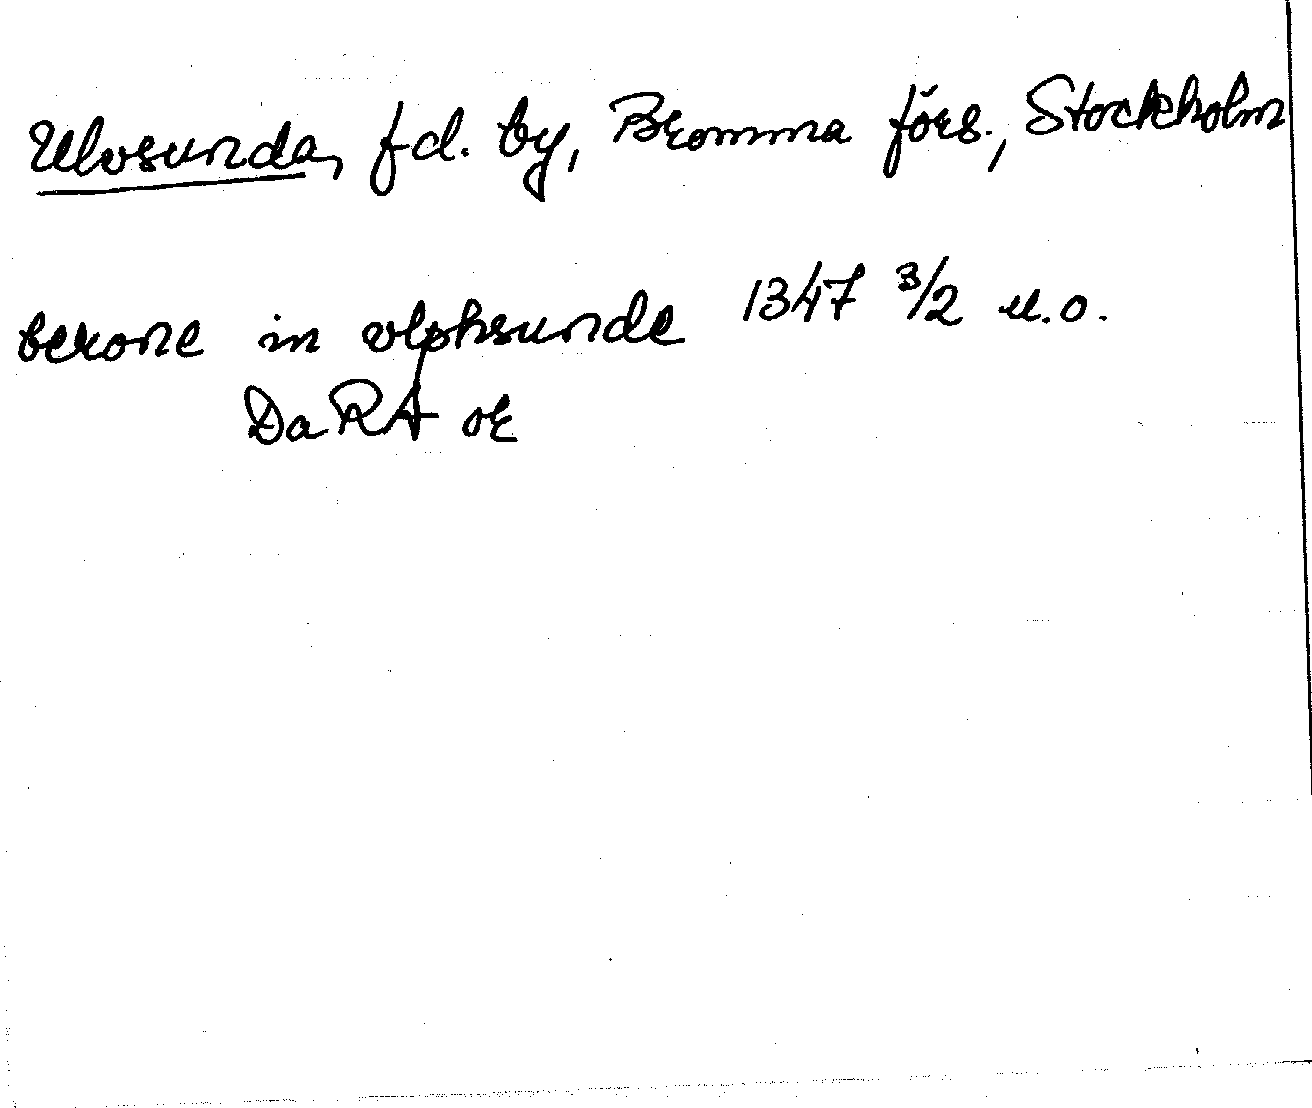 Ulvsunda, f.d. by, Bromma förs., Stockholm
berone in vlphsunde 1347 3/2 u.o.
Da RA or